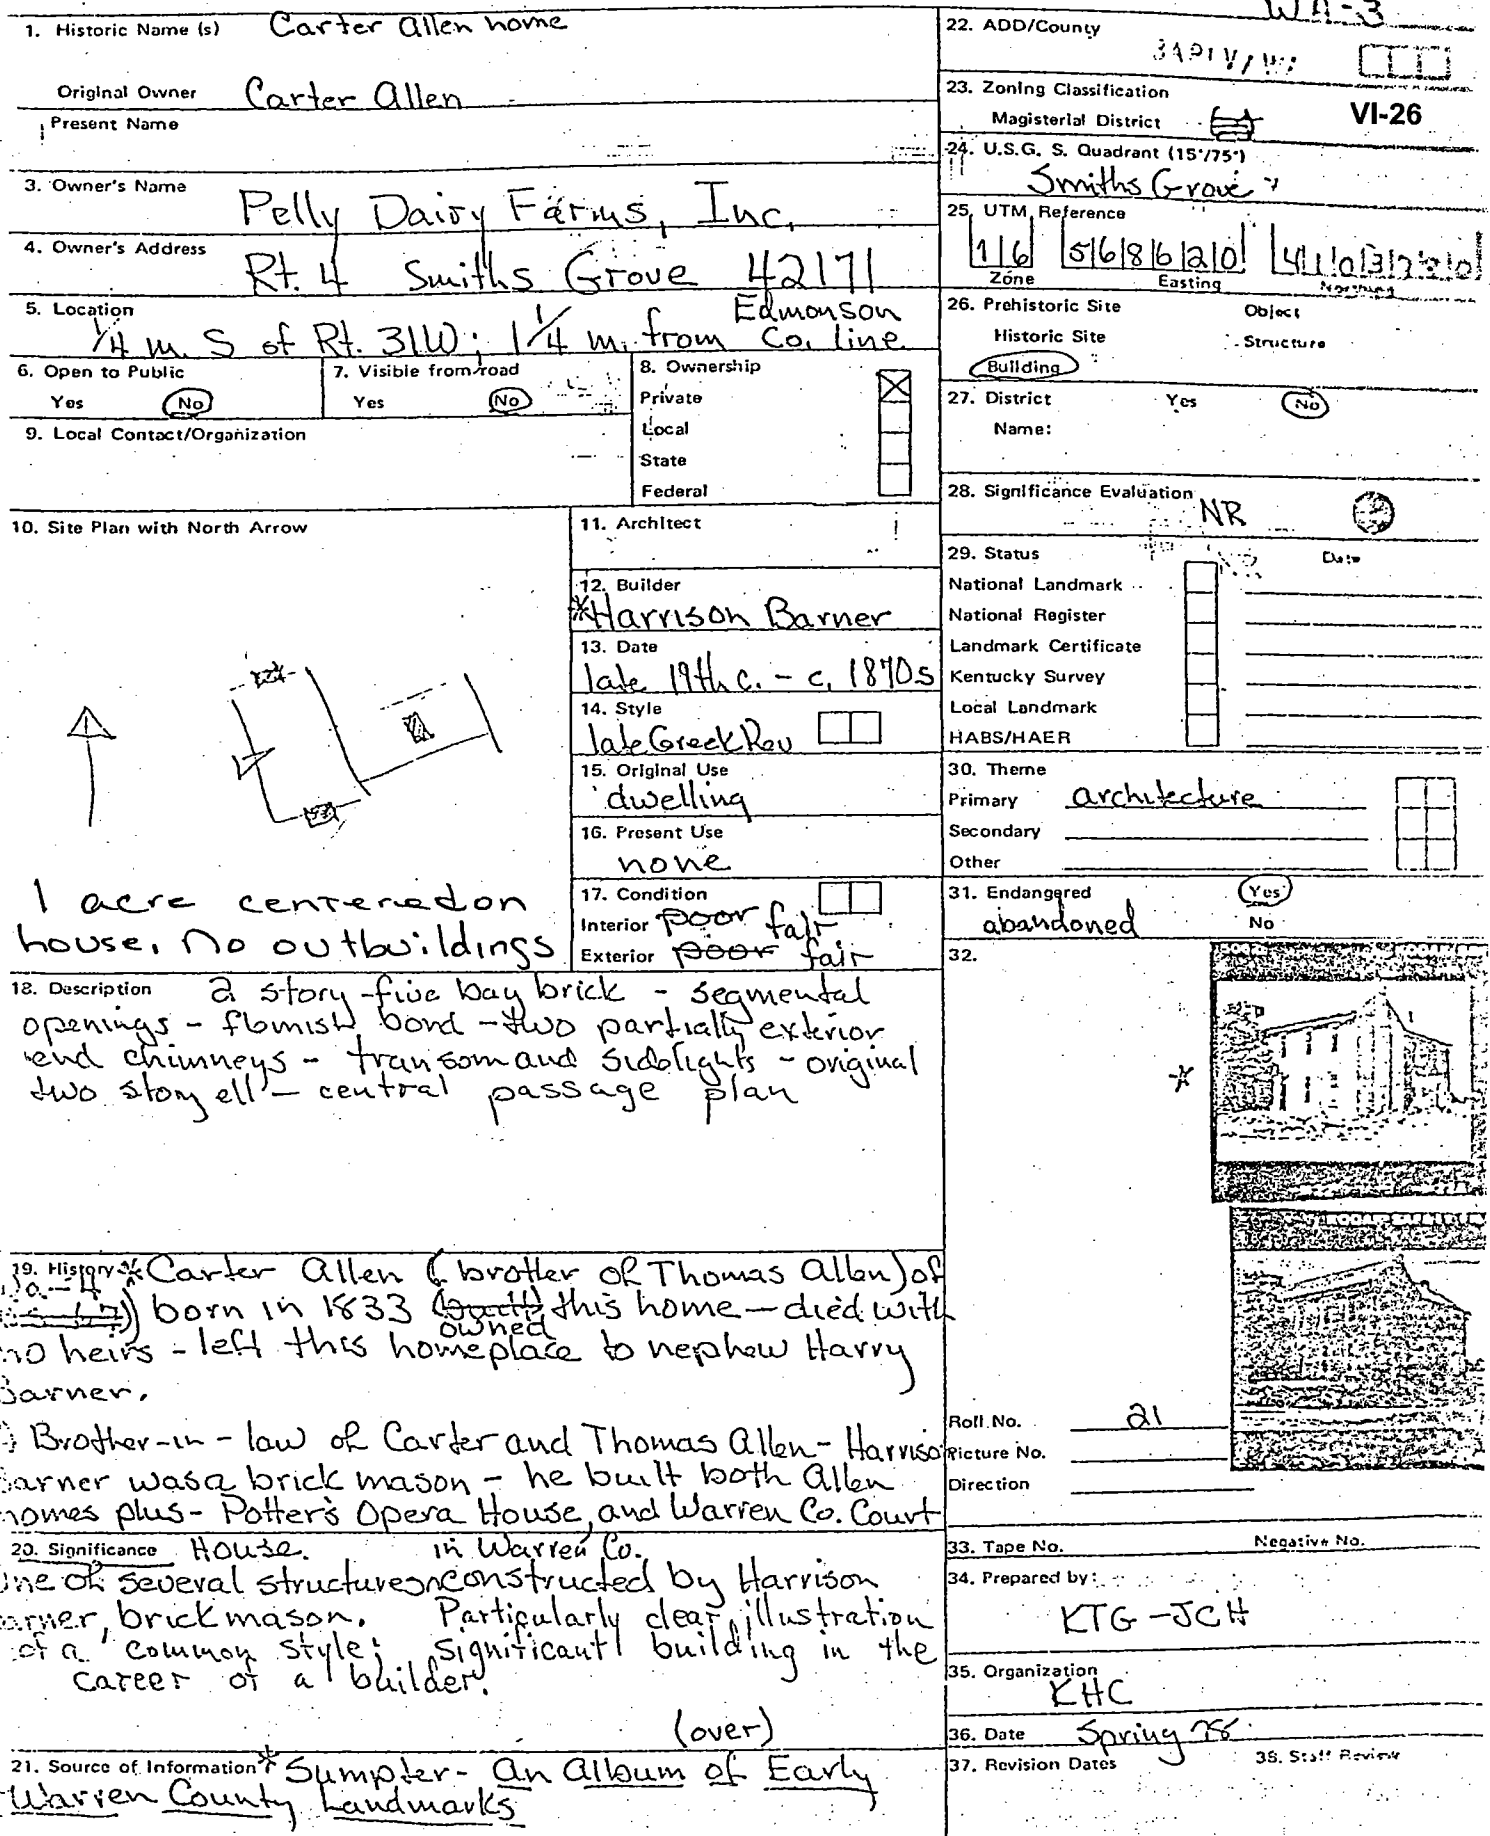 WA-3
1. Historic Name (s) Carter Allen home
Original Owner Carter Allen
Present Name
3. Owner's Name
Pelly Dairy Farms, Inc.
4. Owner's Address
Rt. 4 Smiths Grove 42171
5. Location
1/4 m. S of Rt. 31W; 1 1/4 m. from Edmonson Co. line
6. Open to Public
Yes No
7. Visible from road
Yes No
8. Ownership
Private
Local
State
Federal
9. Local Contact/Organization
10. Site Plan with North Arrow
1 acre centered on
house, no outbuildings
11. Architect
12. Builder
*Harrison Barner
13. Date
late 19th c. - c. 1870s
14. Style
late Greek Rev
15. Original Use
dwelling
16. Present Use
none
17. Condition
Interior poor fair
Exterior poor fair
18. Description 2 story-five bay brick - segmental
openings - flemish bond - two partially exterior
end chimneys - transom and sidelights - original
two story ell - central passage plan
19. History * Carter Allen (brother of Thomas Allen) of
born in 1833 owned this home - died with
no heirs - left this homeplace to nephew Harry
Barner.
Brother-in-law of Carter and Thomas Allen - Harriso
arner was a brick mason - he built both Allen
homes plus - Potter's Opera House, and Warren Co. Court
House.
20. Significance
in Warren Co.
One of several structures constructed by Harrison
arner, brick mason. Particularly clear illustration
of a common style; significant building in the
career of a builder.
(over)
21. Source of Information * Sumpter - An Album of Early
Warren County Landmarks
22. ADD/County
23. Zoning Classification
Magisterial District
VI-26
24. U.S.G. S. Quadrant (15'/75')
Smiths Grove
25. UTM Reference
16 568620
Zone Easting Northing
26. Prehistoric Site Object
Historic Site Structure
Building
27. District Yes No
Name:
28. Significance Evaluation
NR
29. Status Date
National Landmark
National Register
Landmark Certificate
Kentucky Survey
Local Landmark
HABS/HAER
30. Theme
Primary architecture
Secondary
Other
31. Endangered Yes
abandoned No
32.
*
Roll No. 21
Picture No.
Direction
33. Tape No. Negative No.
34. Prepared by:
KTG-JCH
35. Organization
KHC
36. Date Spring
37. Revision Dates 38. Staff Review